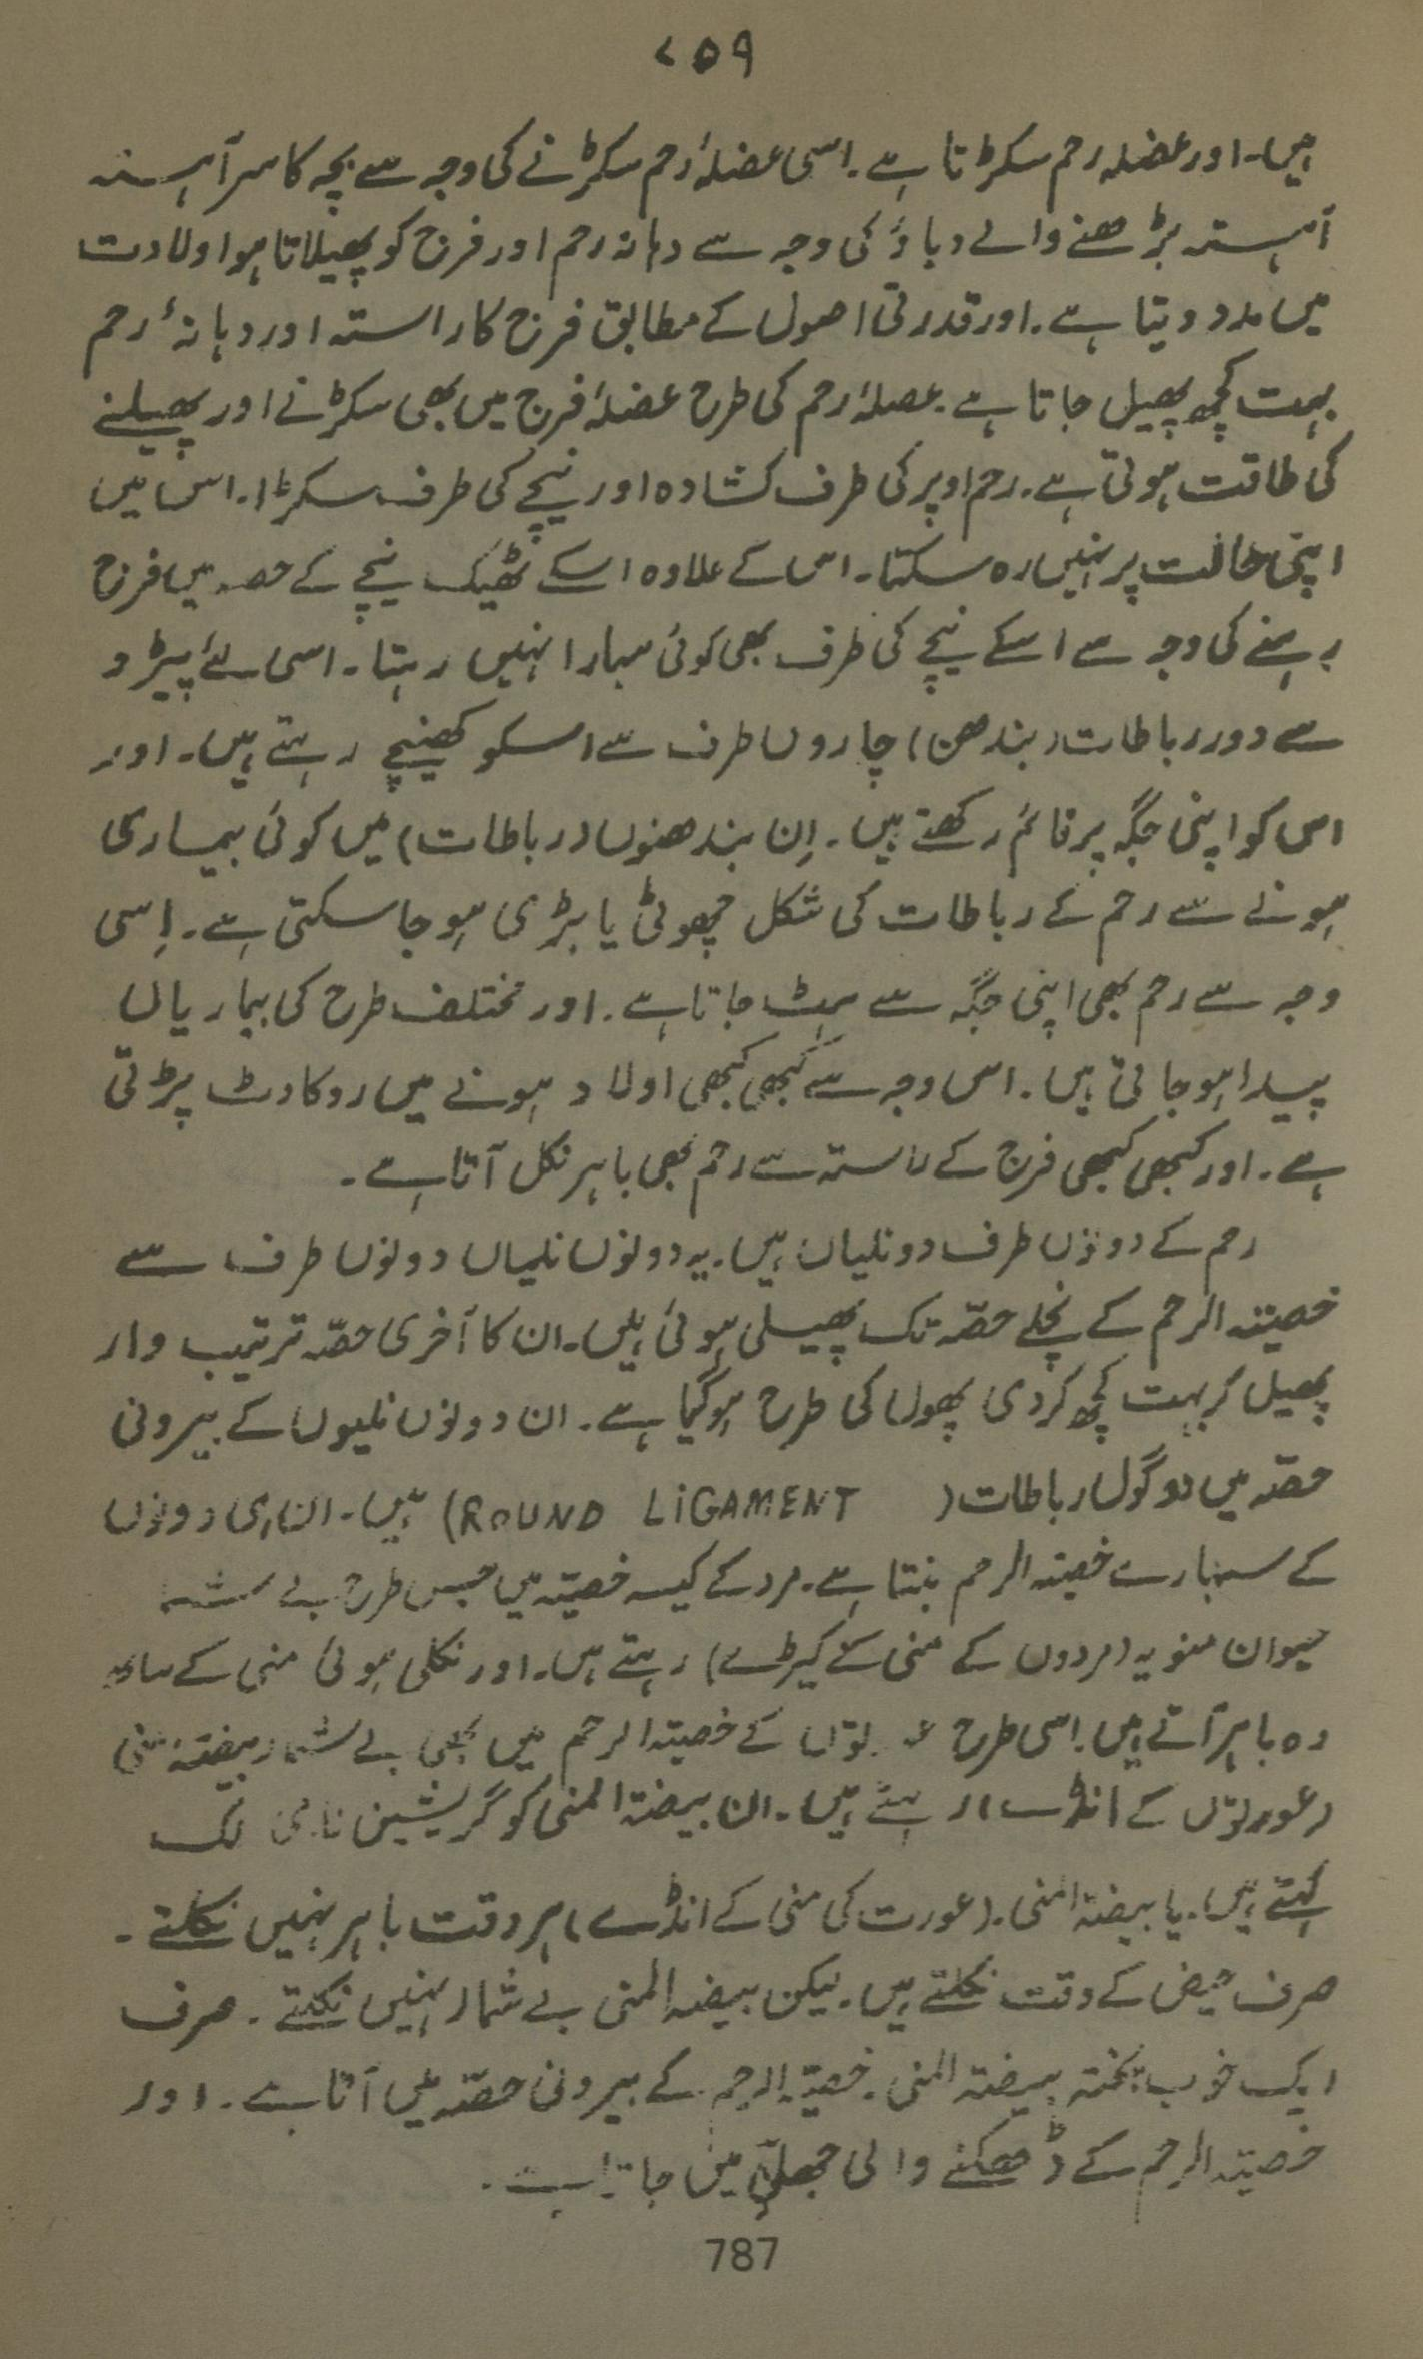 ۷۵۹
ہیں۔ اور عضلہ رحم سکڑتا ہے۔ اسی عضلۂ رحم سکڑنے کی وجہ سے بچہ کا سر آہستہ
آہستہ بڑھنے والے دباؤ کی وجہ سے دہانہ رحم اور فرج کو پھیلاتا ہوا ولادت
میں مدد دیتا ہے۔ اور قدرتی اصول کے مطابق فرج کا راستہ اور دہانۂ رحم
بہت کچھ پھیل جاتا ہے۔ عضلۂ رحم کی طرح عضلۂ فرج میں بھی سکڑنے اور پھیلنے
کی طاقت ہوتی ہے۔ رحم اوپر کی طرف کشادہ اور نیچے کی طرف سکڑا۔ اس میں
اپنی حالت پر نہیں رہ سکتا۔ اس کے علاوہ اسکے ٹھیک نیچے کے حصہ میں فرج
رہنے کی وجہ سے اسکے نیچے کی طرف بھی کوئی سہارا نہیں رہتا۔ اسی لئے پیڑو
سے دور رباطات (بندھن) چاروں طرف سے اسکو کھینچے رہتے ہیں۔ اور
اس کو اپنی جگہ پر قائم رکھتے ہیں۔ اِن بندھنوں (رباطات) میں کوئی بیماری
ہونے سے رحم کے رباطات کی شکل چھوٹی یا بڑی ہو جا سکتی ہے۔ اِسی
وجہ سے رحم بھی اپنی جگہ سے ہٹ جاتا ہے۔ اور مختلف طرح کی بیماریاں
پیدا ہو جاتی ہیں۔ اس وجہ سے کبھی کبھی اولاد ہونے میں روکاوٹ پڑتی
ہے۔ اور کبھی کبھی فرج کے راستہ سے رحم بھی باہر نکل آتا ہے۔
رحم کے دونوں طرف دو نلیاں ہیں۔ یہ دونوں نلیاں دونوں طرف سے
خصیتہ الرحم کے نچلے حصّہ تک پھیلی ہوئی ہیں۔ ان کا آخری حصّہ ترتیب وار
پھیل کر بہت کچھ کردی پھول کی طرح ہو گیا ہے۔ ان دونوں نلیوں کے بیرونی
حصّہ میں دو گول رباطات (ROUND LIGAMENT) ہیں۔ ان ہی دونوں
کے سہارے خصیتہ الرحم بنتا ہے۔ مرد کے کیسہ خصیتہ میں جس طرح بے
حیوان منویہ (مردوں کے منی کے کیڑے) رہتے ہیں۔ اور نکلی ہوئی منی کے ساتھ
وہ باہر آتے ہیں۔ اسی طرح عورتوں کے خصیتہ الرحم میں بھی بے شمار بیضتہ منی
(عورتوں کے انڈے) رہتے ہیں۔ ان بیضتہ المنی کو گریشین
کہتے ہیں۔ یا بیضتہ المنی۔ (عورت کی منی کے انڈے) ہر وقت باہر نہیں نکلتے۔
صرف حیض کے وقت نکلتے ہیں۔ لیکن بیضہ المنی بے شمار نہیں نکلتے۔ صرف
ایک خوب پختہ بیضتہ المنی۔ خصیتہ الرحم کے بیرونی حصّہ میں آتا ہے۔ اور
خصیتہ الرحم کے ڈھکنے والی جھلی میں جاتا ہے۔
787